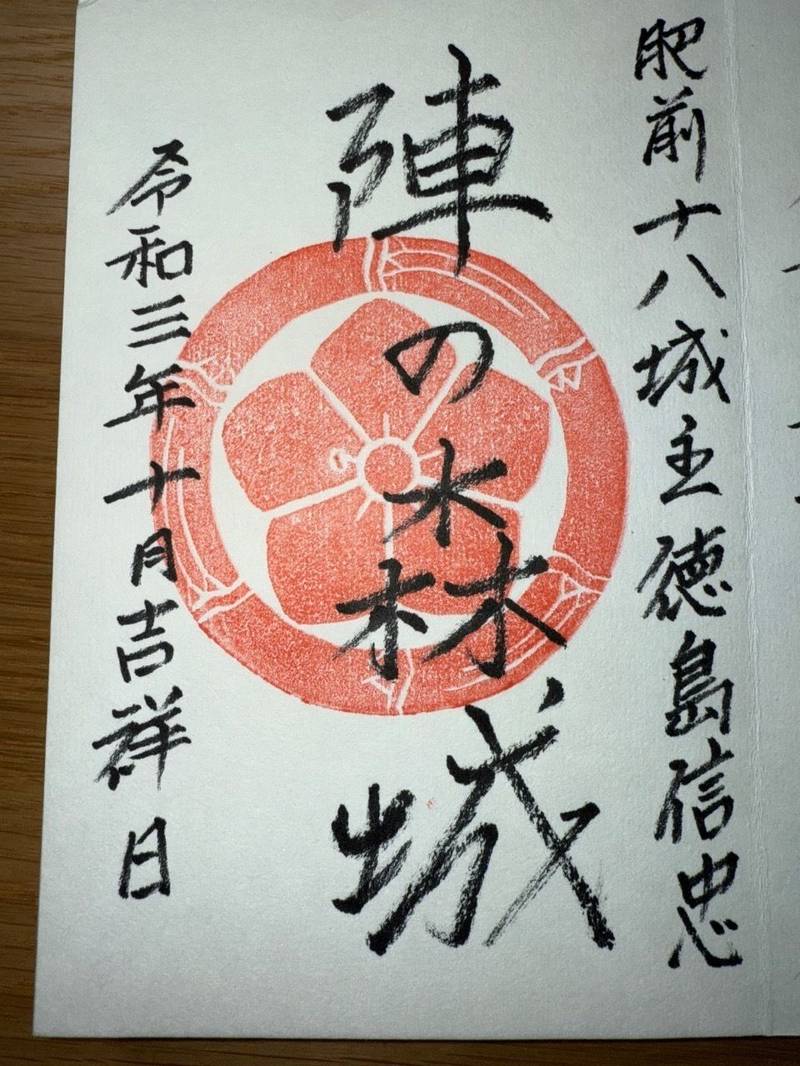 肥前十八城主徳島信忠
陣の森城
令和三年十月吉祥日